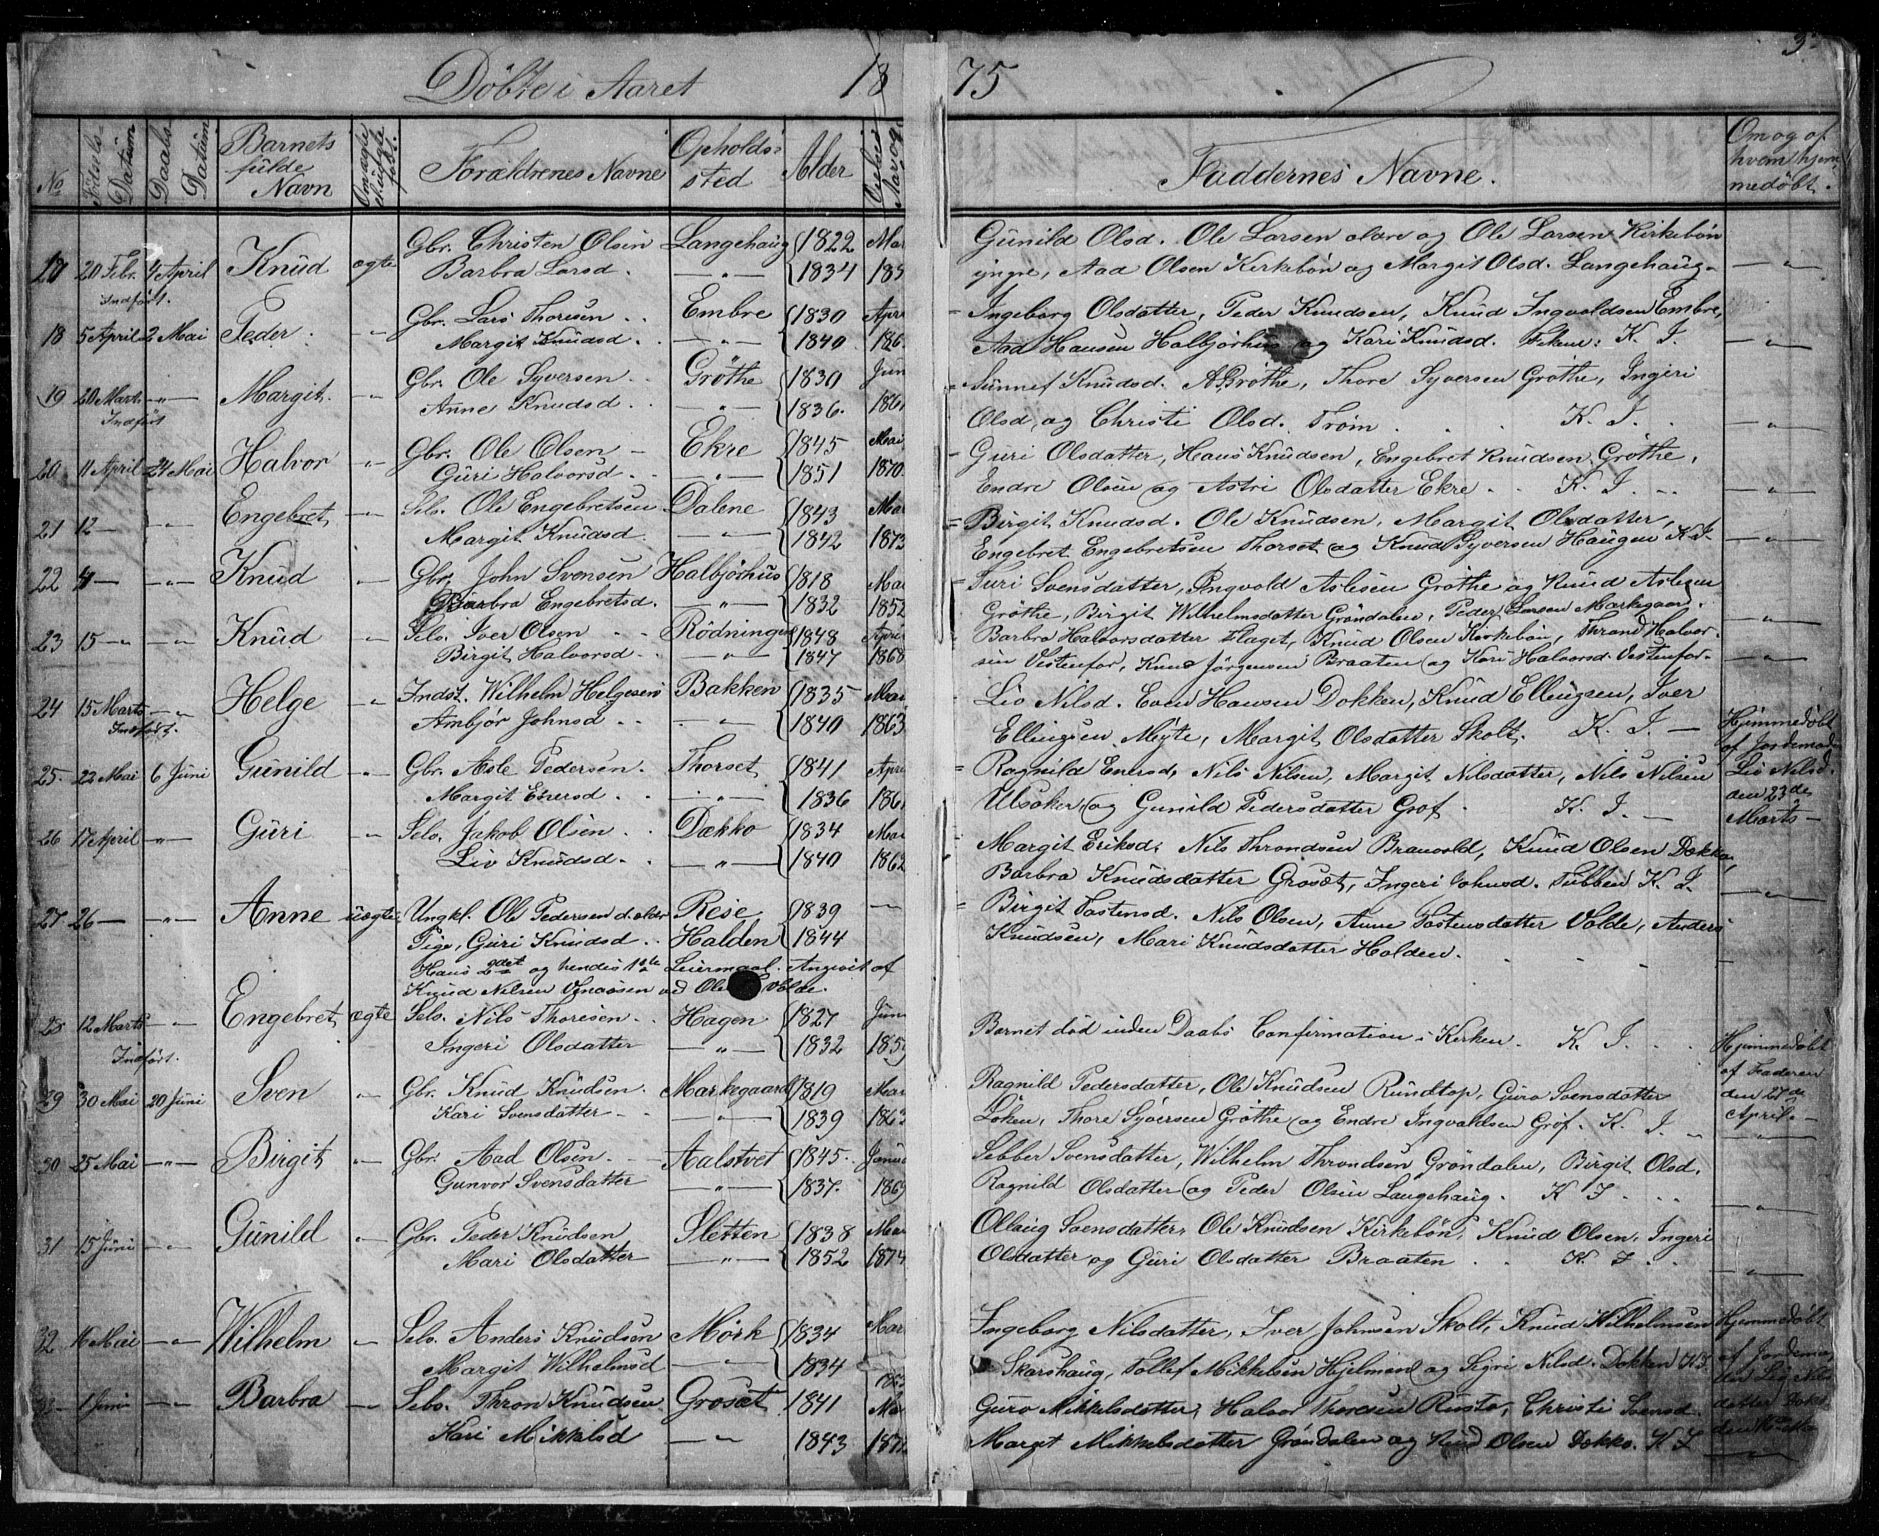 Döbte i Aaret 1875
3
No
Födsels-Datum
Daabs-Datum
Barnets fulde Navn
Om ægte eller uægte født.
Forældrenes Navne
Opholds-sted
Alder
Faddernes Navne.
Om og af hvem hjemmedöbt.
20 Febr. 4 April Knud ægte Gbr. Christen Olsen Langehaug 1822 Mar
Indført. Barbra Larsd. —"— 1834 185
Gunild Olsd. Ole Larsen ældre og Ole Larsen Kirkebön
yngre, Aad Olsen Kirkebön og Margit Olsd. Langehaug. —"—
18 5 April 2 Mai Peder —"— Gbr. Lars Thoresen Embre 1830 Apri
Margit Knudsd. —"— 1840 186
Ingeborg Olsdatter, Peder Knudsen, Knud Ingvoldsen Embre,
Aad Hansen Halbjørhus og Kari Knudsd. K. I. —"—
19 20 Marts —"— Margit —"— Gbr. Ole Syversen Gröthe 1830 Jun
Indført Anne Knudsd. —"— 1836 186
Sunnef Knudsd. Gröthe, Thore Syversen Gröthe, Ingeri
Olsd. og Christi Olsd. Tröim K. I. —"—
20 11 April 24 Mai Halvor —"— Gbr. Ole Olsen Ekre 1845 Mai
Guri Halvorsd. —"— 1851 1870
Guri Olsdatter, Hans Knudsen, Engebret Knudsen Gröthe,
Endre Olsen og Astri Olsdatter Ekre K. I. —"—
21 12 — —"— Engebret —"— Selv. Ole Engebretsen Dalene 1843 Mar
Margit Knudsd. —"— 1842 1873
Birgit Knudsd. Ole Knudsen, Margit Olsdatter,
Engebret Engebretsen Thorset og Knud Syversen Haugen K. I. —"—
22 4 — —"— Knud —"— Gbr. John Svensen Halbjørhus 1818 Mai
Barbra Engebretsd. —"— 1832 1852
Turi Svensdatter, Ingvold Aslesen Gröthe og Knud Aslesen
Gröthe, Birgit Wilhelmsdatter Gröndalen, Peder Larsen Markegaard. —"—
23 15 — —"— Knud —"— Selv. Iver Olsen Rödningen 1848 Apri
Birgit Halvorsd. —"— 1847 1868
Barbro Halvorsdatter Flaget, Knud Olsen Kirkebön, Thrond Halvor-
sen Vestenfor, Knud Jörgensen Braaten og Kari Halvorsd. Vestenfor. —"—
24 15 Marts —"— Helge —"— Indst. Wilhelm Helgesen Bakken 1835 Mai
Indført. Ambjør Johnsd. —"— 1840 1863
Liv Nilsd. Even Hansen Dokken, Knud Ellingsen, Iver
Ellingsen Myte, Margit Olsdatter Skolt. K. I. —
Hjemmedöbt
af Jordemoder
Liv Nilsd.
den 23de
Marts —
25 22 Mai 6 Juni Gunild —"— Gbr. Asle Pedersen Thorset 1841 Apri
Margit Enersd. —"— 1836 186
Ragnild Enersd, Nils Nilsen, Margit Nilsdatter, Nils Nilsen
Ulsaker og Gunild Pedersdatter Grøf K. I. —
26 17 April —"— Guri —"— Selv. Jakob Olsen Dækko 1834 Mar
Liv Knudsd. —"— 1840 1862
Margit Eriksd, Nils Throndsen Branvold, Knud Olsen Dækko,
Barbra Knudsdatter Grosæt, Ingeri Johnsd. Tubben K. I. —"—
27 26 — —"— Anne uægte Ungkl. Ole Pedersen d. ældre Rese 1839 —
Pige, Guri Knudsd. Halden 1844
Hans 2det og hendes 1ste Leiermaal. Angivet af
Knud Nilsen og Ole Volde.
Birgit Tostensd. Nils Olsen, Anne Tostensdatter Volde, Anders
Knudsen, Mari Knudsdatter Halden.
28 12 Marts —"— Engebret ægte Selv. Nils Thoresen Hagen 1827 Juni
Indført. Ingeri Olsdatter —"— 1832 185
Barnet död inden Daabs Confirmation i Kirken. K. I.
Hjemmedöbt
af Faderen
den 27de
April —
29 30 Mai 20 Juni Sven —"— Gbr. Knud Knudsen Markegaard 1819 Mar
Kari Svensdatter —"— 1839 1863
Ragnild Pedersdatter, Ole Knudsen Rundtop, Guro Svensdatter
Löken, Thore Syversen Gröthe og Endre Ingvaldsen Grøf. K. I. —"—
30 25 Mai —"— Birgit —"— Gbr. Aad Olsen Aalstvet 1845 Janu
Gunvor Svensdatter —"— 1837 1869
Sebber Svensdatter, Wilhelm Throndsen Gröndalen, Birgit Olsd.
Ragnild Olsdatter og Peder Olsen Langehaug. K. I. —"—
31 15 Juni —"— Gunild —"— Gbr. Peder Knudsen Sletten 1838 Mar
Mari Olsdatter —"— 1852 1874
Ollaug Svensdatter, Ole Knudsen Kirkebön, Knud Olsen, Ingeri
Olsdatter og Guri Olsdatter Braaten K. I. —"—
32 16 Mai —"— Wilhelm —"— Selv. Anders Knudsen Mörk 1834 Mar
Margit Wilhelmsd —"— 1834
Ingeborg Nilsdatter, Iver Johnsen Skolt, Knud Wilhelmsen
Skarshaug, Tollef Mikkelsen Hjelmen og Sigri Nilsd. Dokken K. I.
Hjemmedöbt
af Jordemo-
der Liv Nils-
datter
33 1 Juni —"— Barbra —"— Selv. Thron Knudsen Grosæt 1841 Ma
Kari Mikkelsd —"— 1843 187
Guro Mikkelsdatter, Halvor Thoresen Rusto, Christi Svensd.
Margit Mikkelsdatter Gröndalen og Knud Olsen Dækko. K. I. —"—